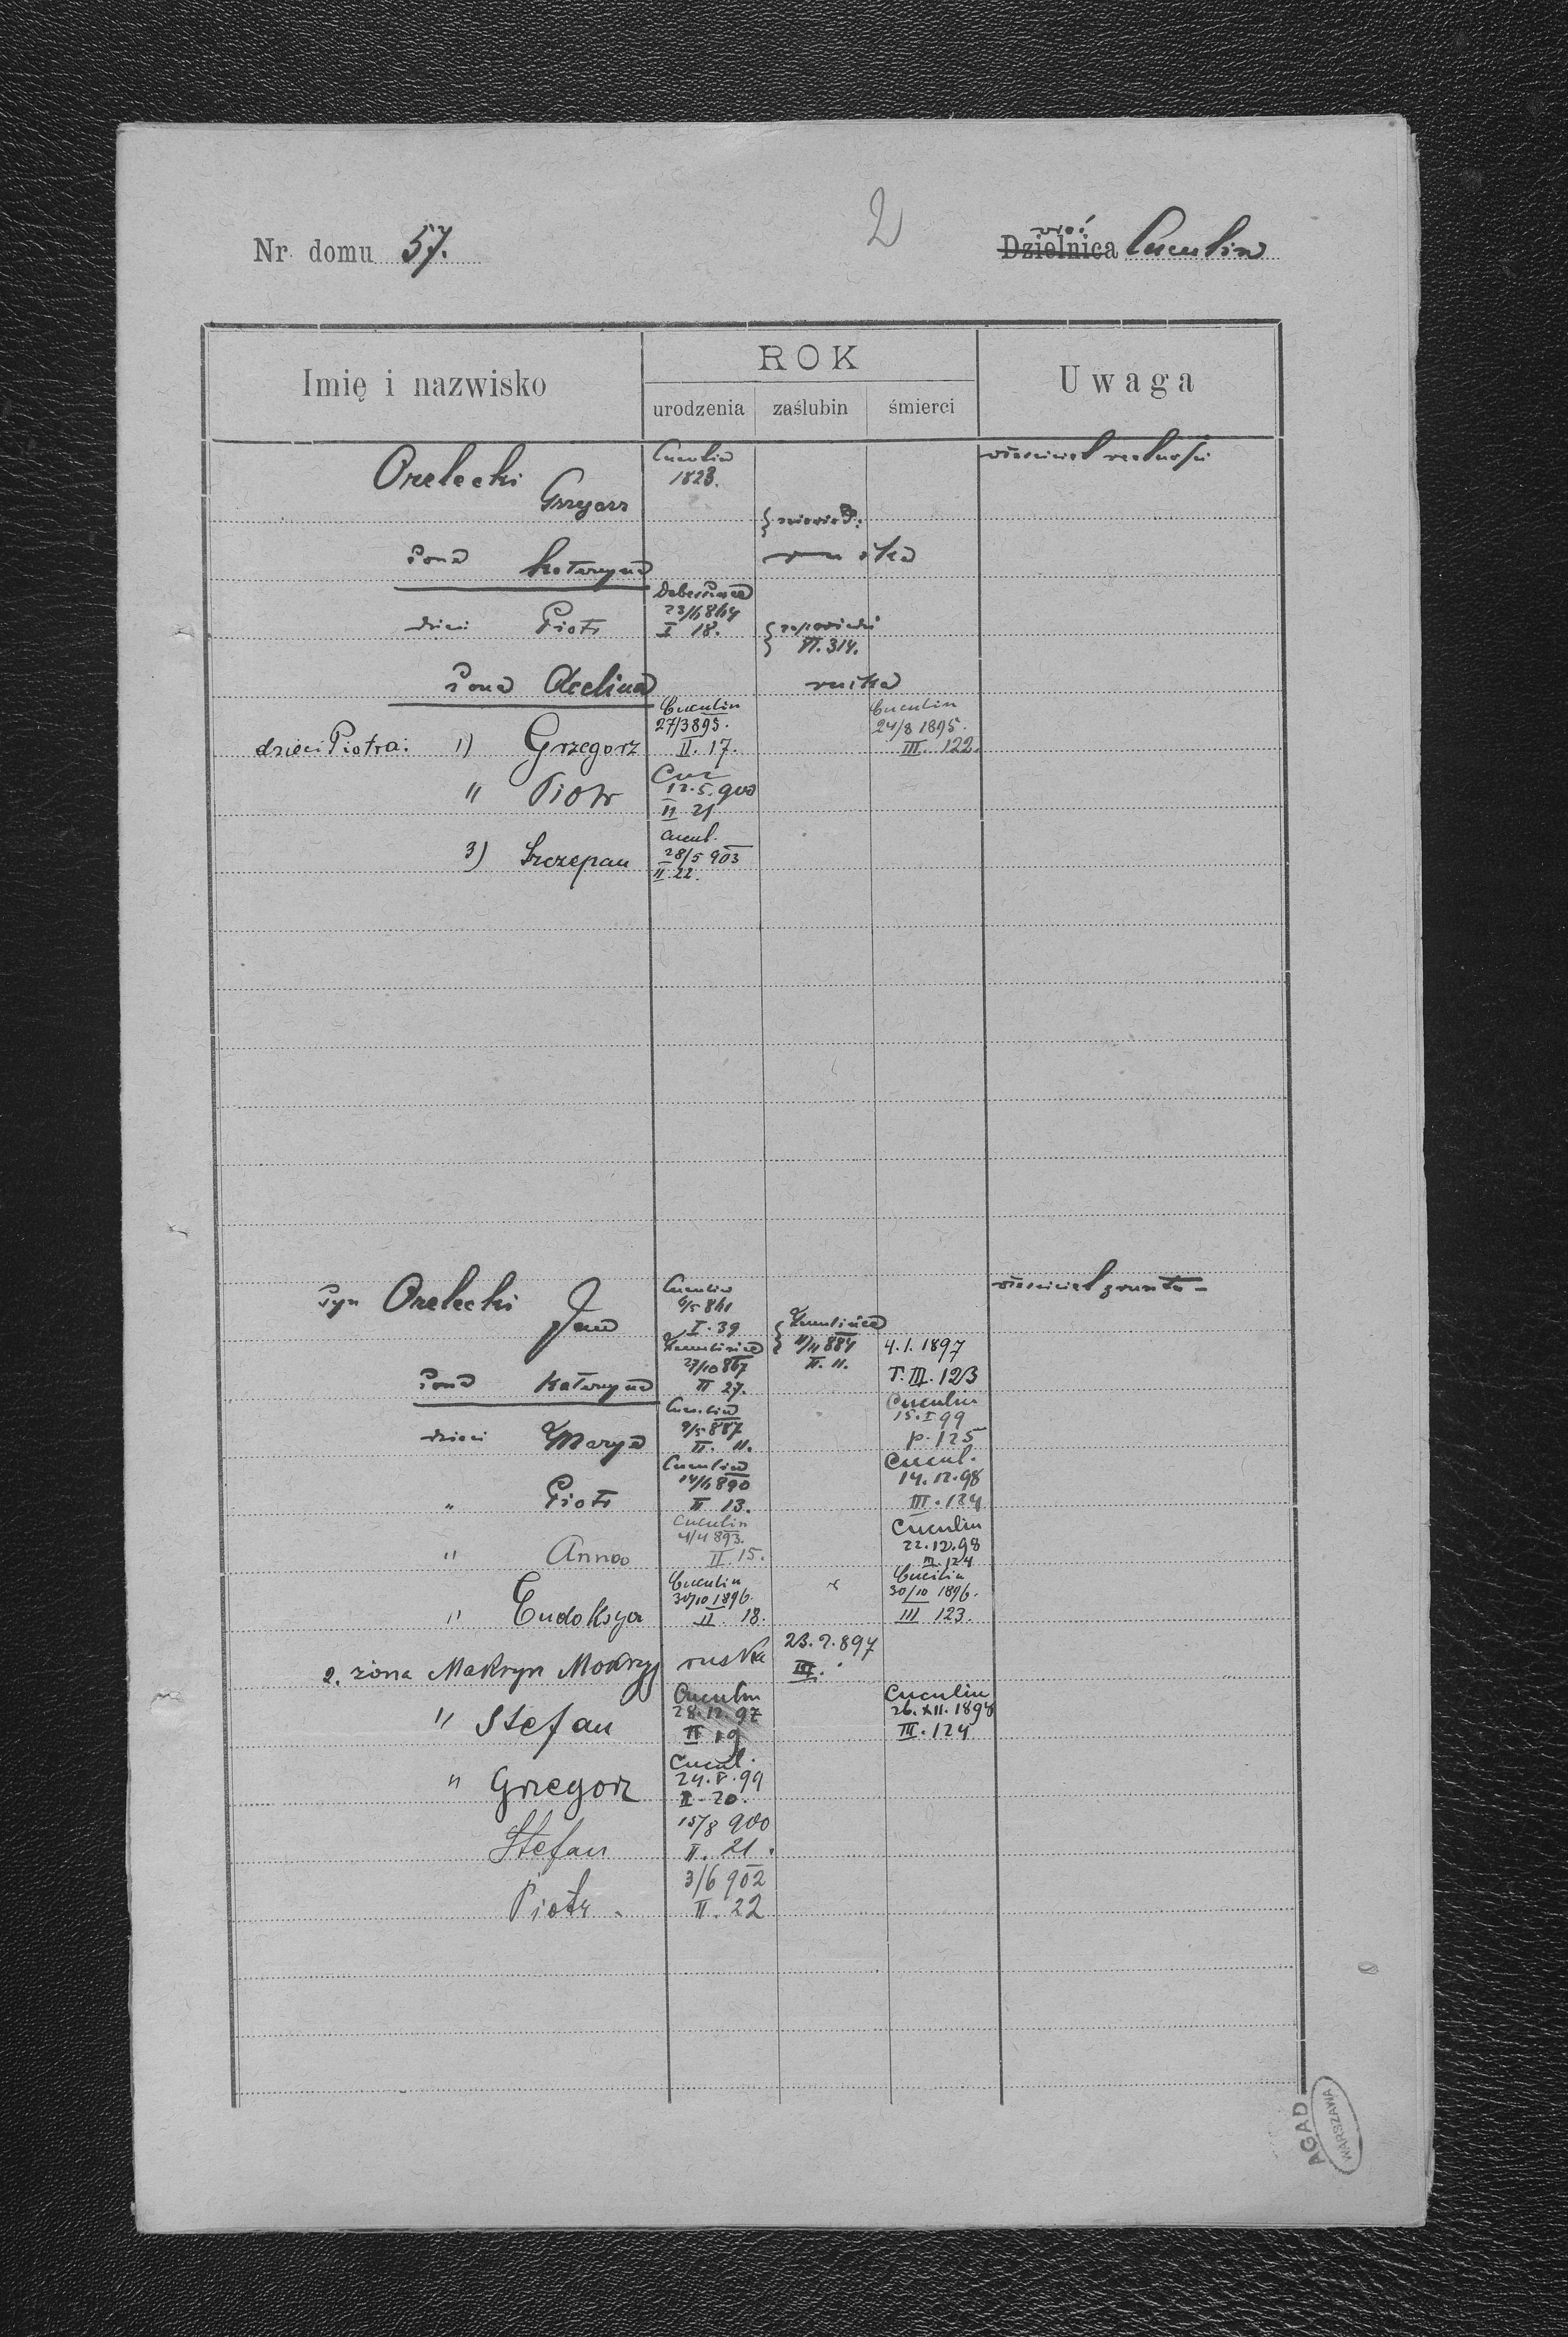 2
Nr domu 57.
wieś
Dzielnica Cuculin
Imię i nazwisko
ROK
urodzenia zaślubin śmierci
Uwaga
Orelecki Cuculin właściciel
Grzegorz 1828.
żona Katarzyna
dzieci Piotr
23/6 864
I 18.
zapowiedzi
VI. 314.
żona Acelina ruska
dzieci Piotra: 1) Grzegorz
Cuculin
27/3 895.
II. 17.
Cuculin
24/8 1895.
III. 122.
" Piotr
Cuc
12.5.900
II 21
3) Szczepan
Cucul.
28/5 903
II 22.
syn Orelecki Jan
Cuculin
6/5 861
I. 39
właściciel gruntu
11/11 884
II. 11.
4.1.1897
T. III. 123
żona Katarzyna
27/10 867
II 27.
dzieci Marya
Cuculin
9/5 887
II. 11.
Cuculin
15.I 99
p. 125
" Piotr
Cuculin
14/6 890
II 13.
Cucul.
14.12.98
III. 124
" Anna
Cuculin
4/4 893.
II. 15.
Cuculin
22.12.98
III. 124
" Eudoksya
Cuculin
30/10 1896.
II. 18.
Cuculin
30/10 1896.
III 123.
2. żona Makryn Mokrzyj ruska
23.2.897
III.
" Stefan
Cuculin
28.12.97
II 19
Cuculin
26.XII.1898
III. 124
" Grzegorz
Cucul.
24.V.99
II. 20.
Stefan
15/8 900
II. 21.
Piotr.
3/6 902
II. 22
AGAD
WARSZAWA